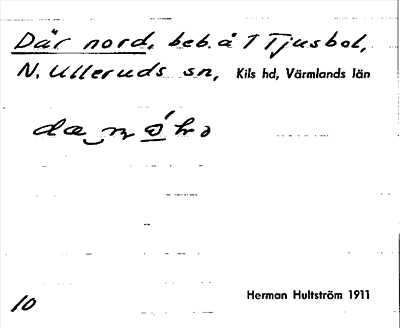 Där nord, beb. å 1 Tjusbol,
N. Ulleruds sn, Kils hd, Värmlands län
10
Herman Hultström 1911